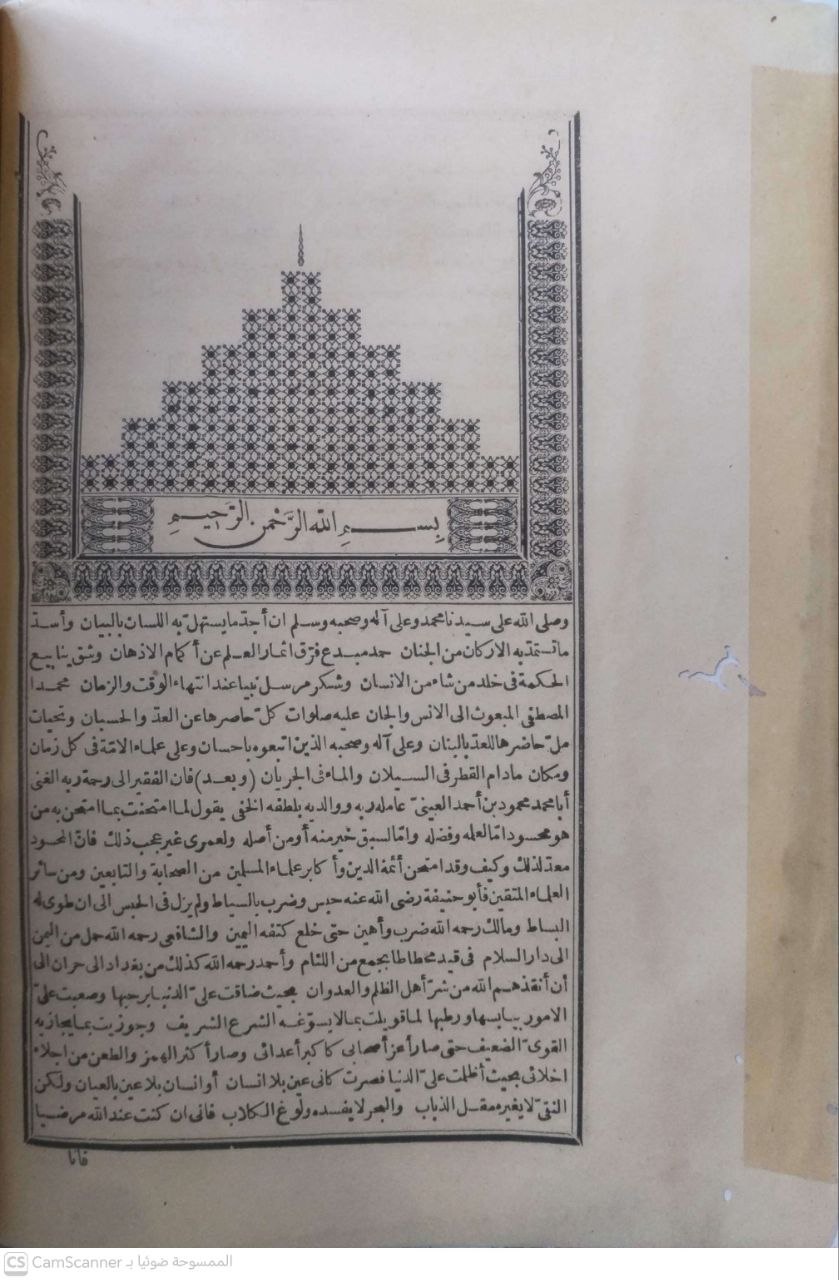 بِسْــــمِ اللهِ الرَّحْمنِ الرَّحِيمِ
وصلى الله على سيدنا محمد وعلى آله وصحبه وسلم ان أجدّ ما يستهلّ به اللسان بالبيان وأسدّ
ما تستمدّ به الاركان من الجنان حمد مبدع فرّق اثمار العلم عن أكمام الاذهان وشق ينابيع
الحكمة فى خلد من شاء من الانسان وشكر مرسل نبيا عند انتهاء الوقت والزمان محمدا
المصطفى المبعوث الى الانس والجان عليه صلوات كلّ حاصرها عن العدّ والحسبان وتحيات
ملّ حاضرها للعدّ بالبنان وعلى آله وصحبه الذين اتبعوه باحسان وعلى علماء الامّة فى كل زمان
ومكان مادام القطر فى السيلان والماء فى الجريان (وبعد) فان الفقير الى رحمة ربه الغنى
أبا محمد محمود بن أحمد العينىّ عامله ربه ووالديه بلطفه الخفى يقول لما امتحنت بما امتحن به من
هو محسود امّا لعله وفضله وامّا لسبق خير منه أو من أصله ولعمرى غير عجب ذلك فانّ المحسود
معدّ لذلك وكيف وقد امتحن أئمة الدين وأكابر علماء المسلمين من الصحابة والتابعين ومن سائر
العلماء المتقين فأبو حنيفة رضى الله عنه حبس وضرب بالسياط ولم يزل فى الحبس الى ان طوى له
البساط ومالك رحمه الله ضرب وأهين حتى خلع كتفه اليمين والشافعى رحمه الله حمل من اليمن
الى دار السلام فى قيد محطاطا بجمع من اللئام وأحمد رحمه الله كذلك من بغداد الى حران الى
أن أنقذهم الله من شرّ أهل الظلم والعدوان بحيث ضاقت علىّ الدنيا برحبها وصعبت علىّ
الامور بيابسها ورطبها لما قوبلت بما لا يسوّغه الشرع الشريف وجوزيت بما يجازيه
القوىّ الضعيف حتى صار أعز أصحابى كاكبر أعدائى وصار أكثر الهمز والطعن من اجلاء
اخلائى بحيث أظلمت علىّ الدنيا فصرت كانى عين بلا انسان أو انسان بلا عين بالعيان ولكن
النقىّ لا يغيره مقل الذباب والبحر لا يفسده ولوغ الكلاب فانى ان كنت عند الله مرضيا
فانا
CS CamScanner الممسوحة ضوئيا بـ